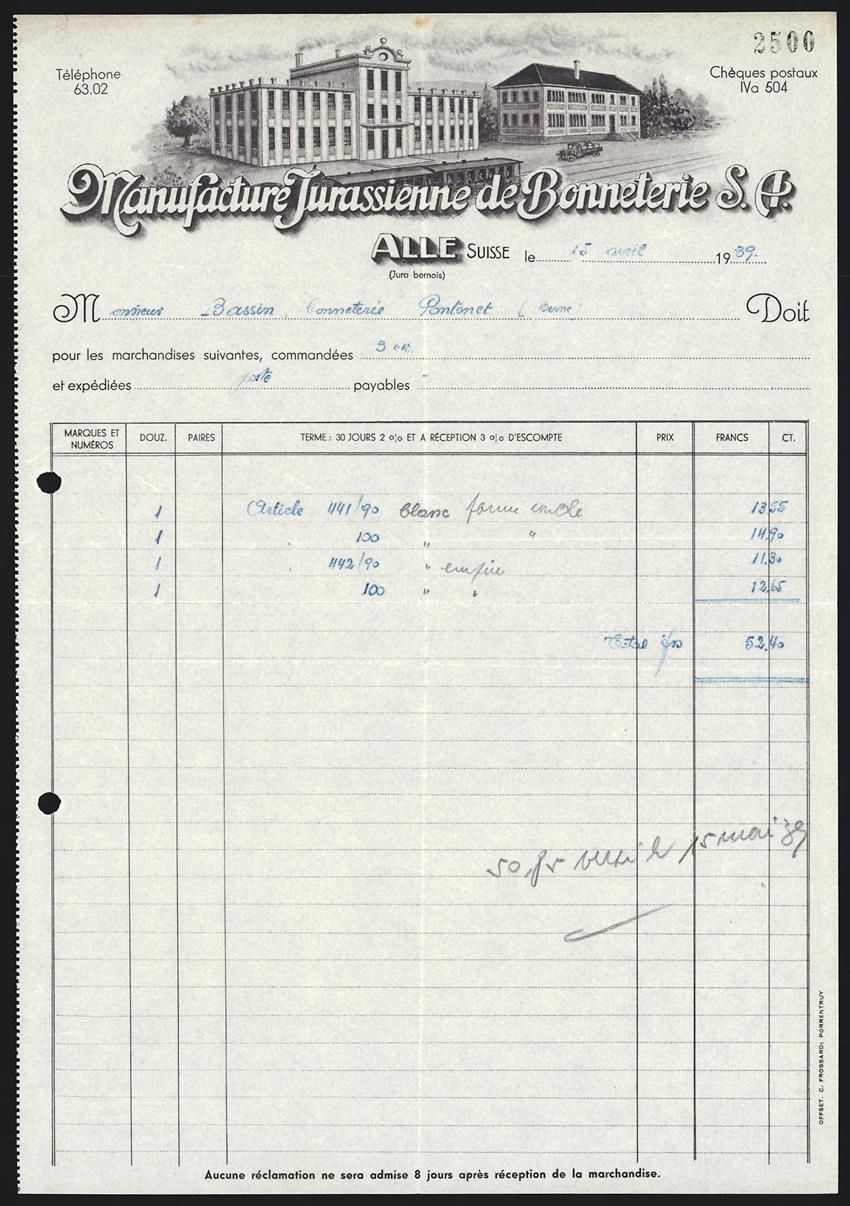 2500
Téléphone
63.02
Chèques postaux
IVa 504
Manufacture Jurassienne de Bonneterie S. A.
ALLE SUISSE le 15 avril 1939.
(Jura bernois)
Monsieur Bassin, bonneterie Pontenet (Berne) Doit
pour les marchandises suivantes, commandées 3 crt
et expédiées poste payables -
MARQUES ET NUMÉROS DOUZ. PAIRES TERME : 30 JOURS 2 % ET A RÉCEPTION 3 % D'ESCOMPTE PRIX FRANCS CT.
1 Article 441/90 blanc forme 13.55
1 100 " " 14.90
1 442/90 " empire 11.30
1 100 " " 12.65
Total frs 52.40
50,85 le 15 mai 39
Aucune réclamation ne sera admise 8 jours après réception de la marchandise.
OFFSET. C. FROSSARD; PORRENTRUY